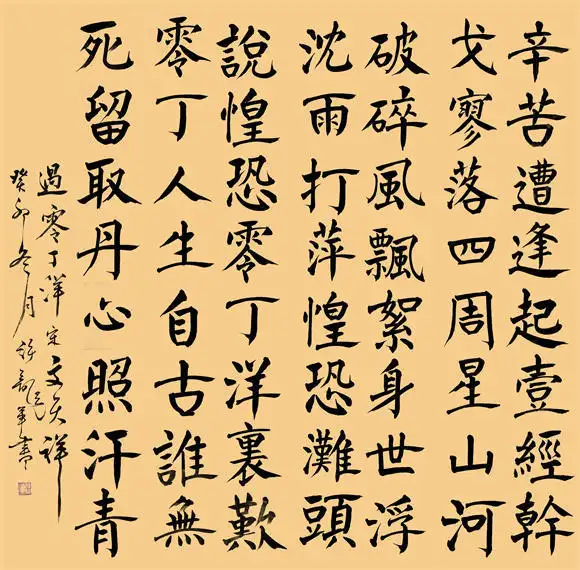 辛苦遭逢起壹經幹
戈寥落四周星山河
破碎風飄絮身世浮
沈雨打萍惶恐灘頭
說惶恐零丁洋裏歎
零丁人生自古誰無
死留取丹心照汗青
過零丁洋 宋 文天祥
癸卯冬月 書